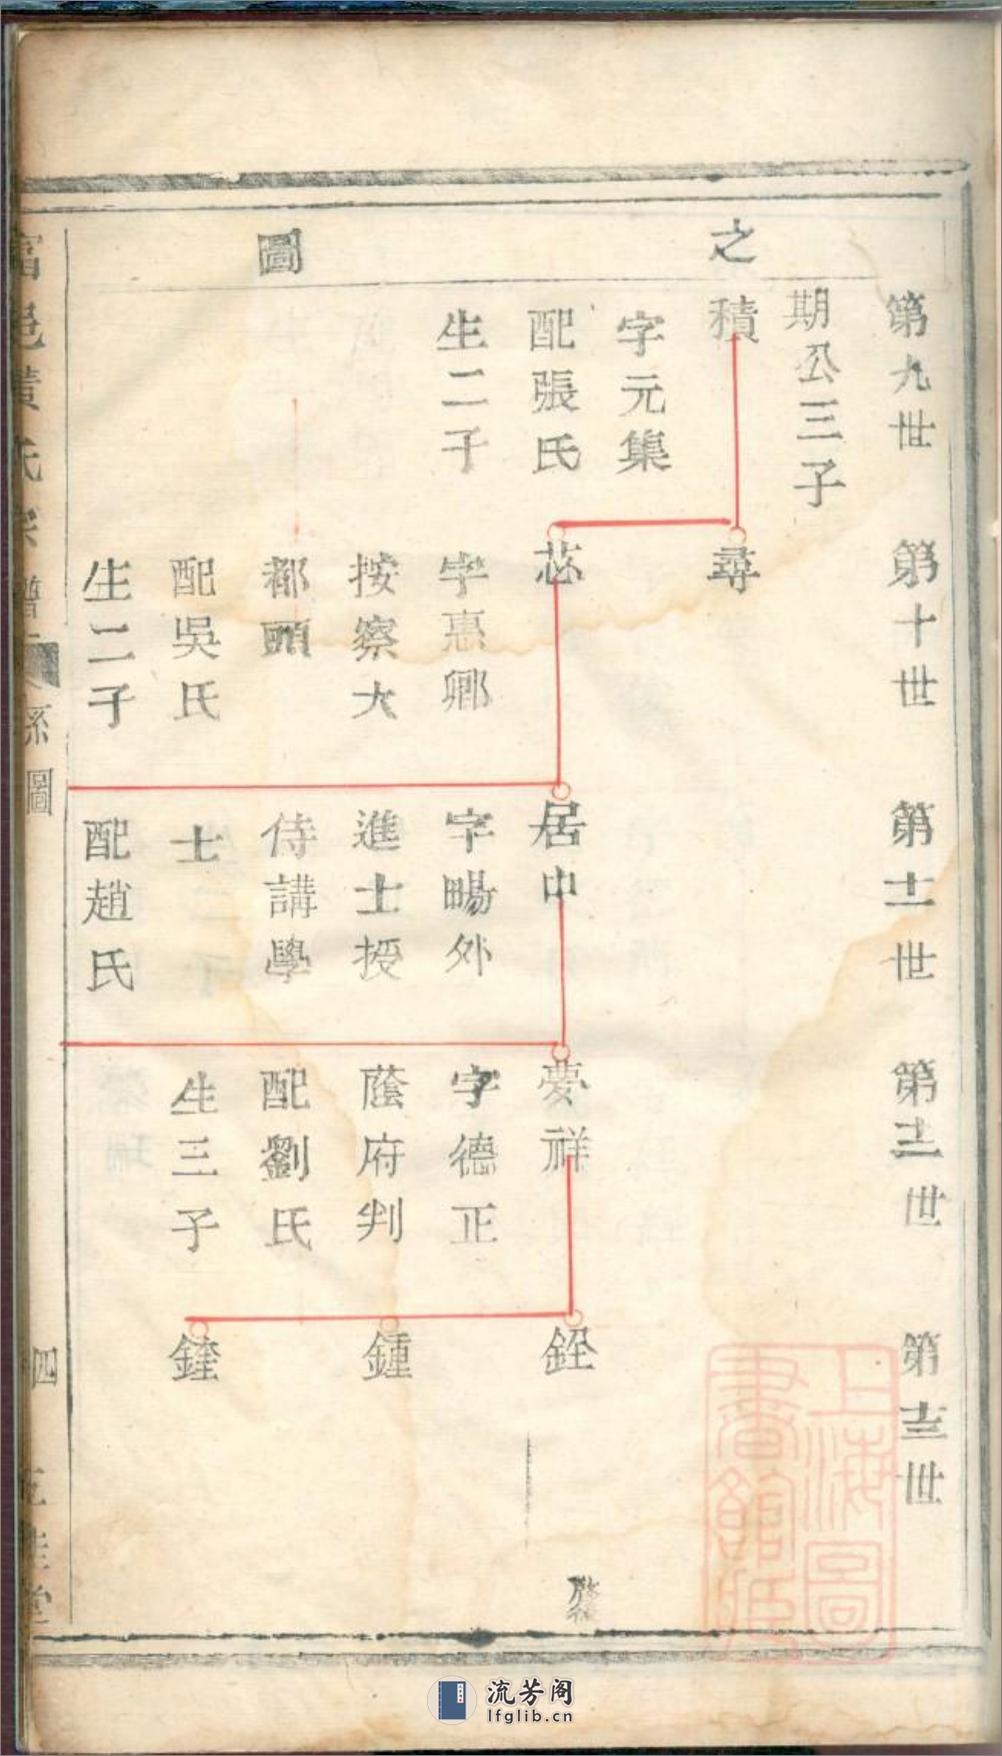 之
圖
第九世
期公三子
積
字元集
配張氏
生二子
第十世
尋
苾
字惠卿
按察大
都頭
配吳氏
生二子
第十一世
居中
字暢外
進士授
侍講學
士
配趙氏
第十二世
夢祥
字德正
蔭府判
配劉氏
生三子
第十三世
銓
鍾
鑳
富邑黃氏宗譜
系圖
四
五桂堂
上海圖書館藏
流芳阁
lfglib.cn